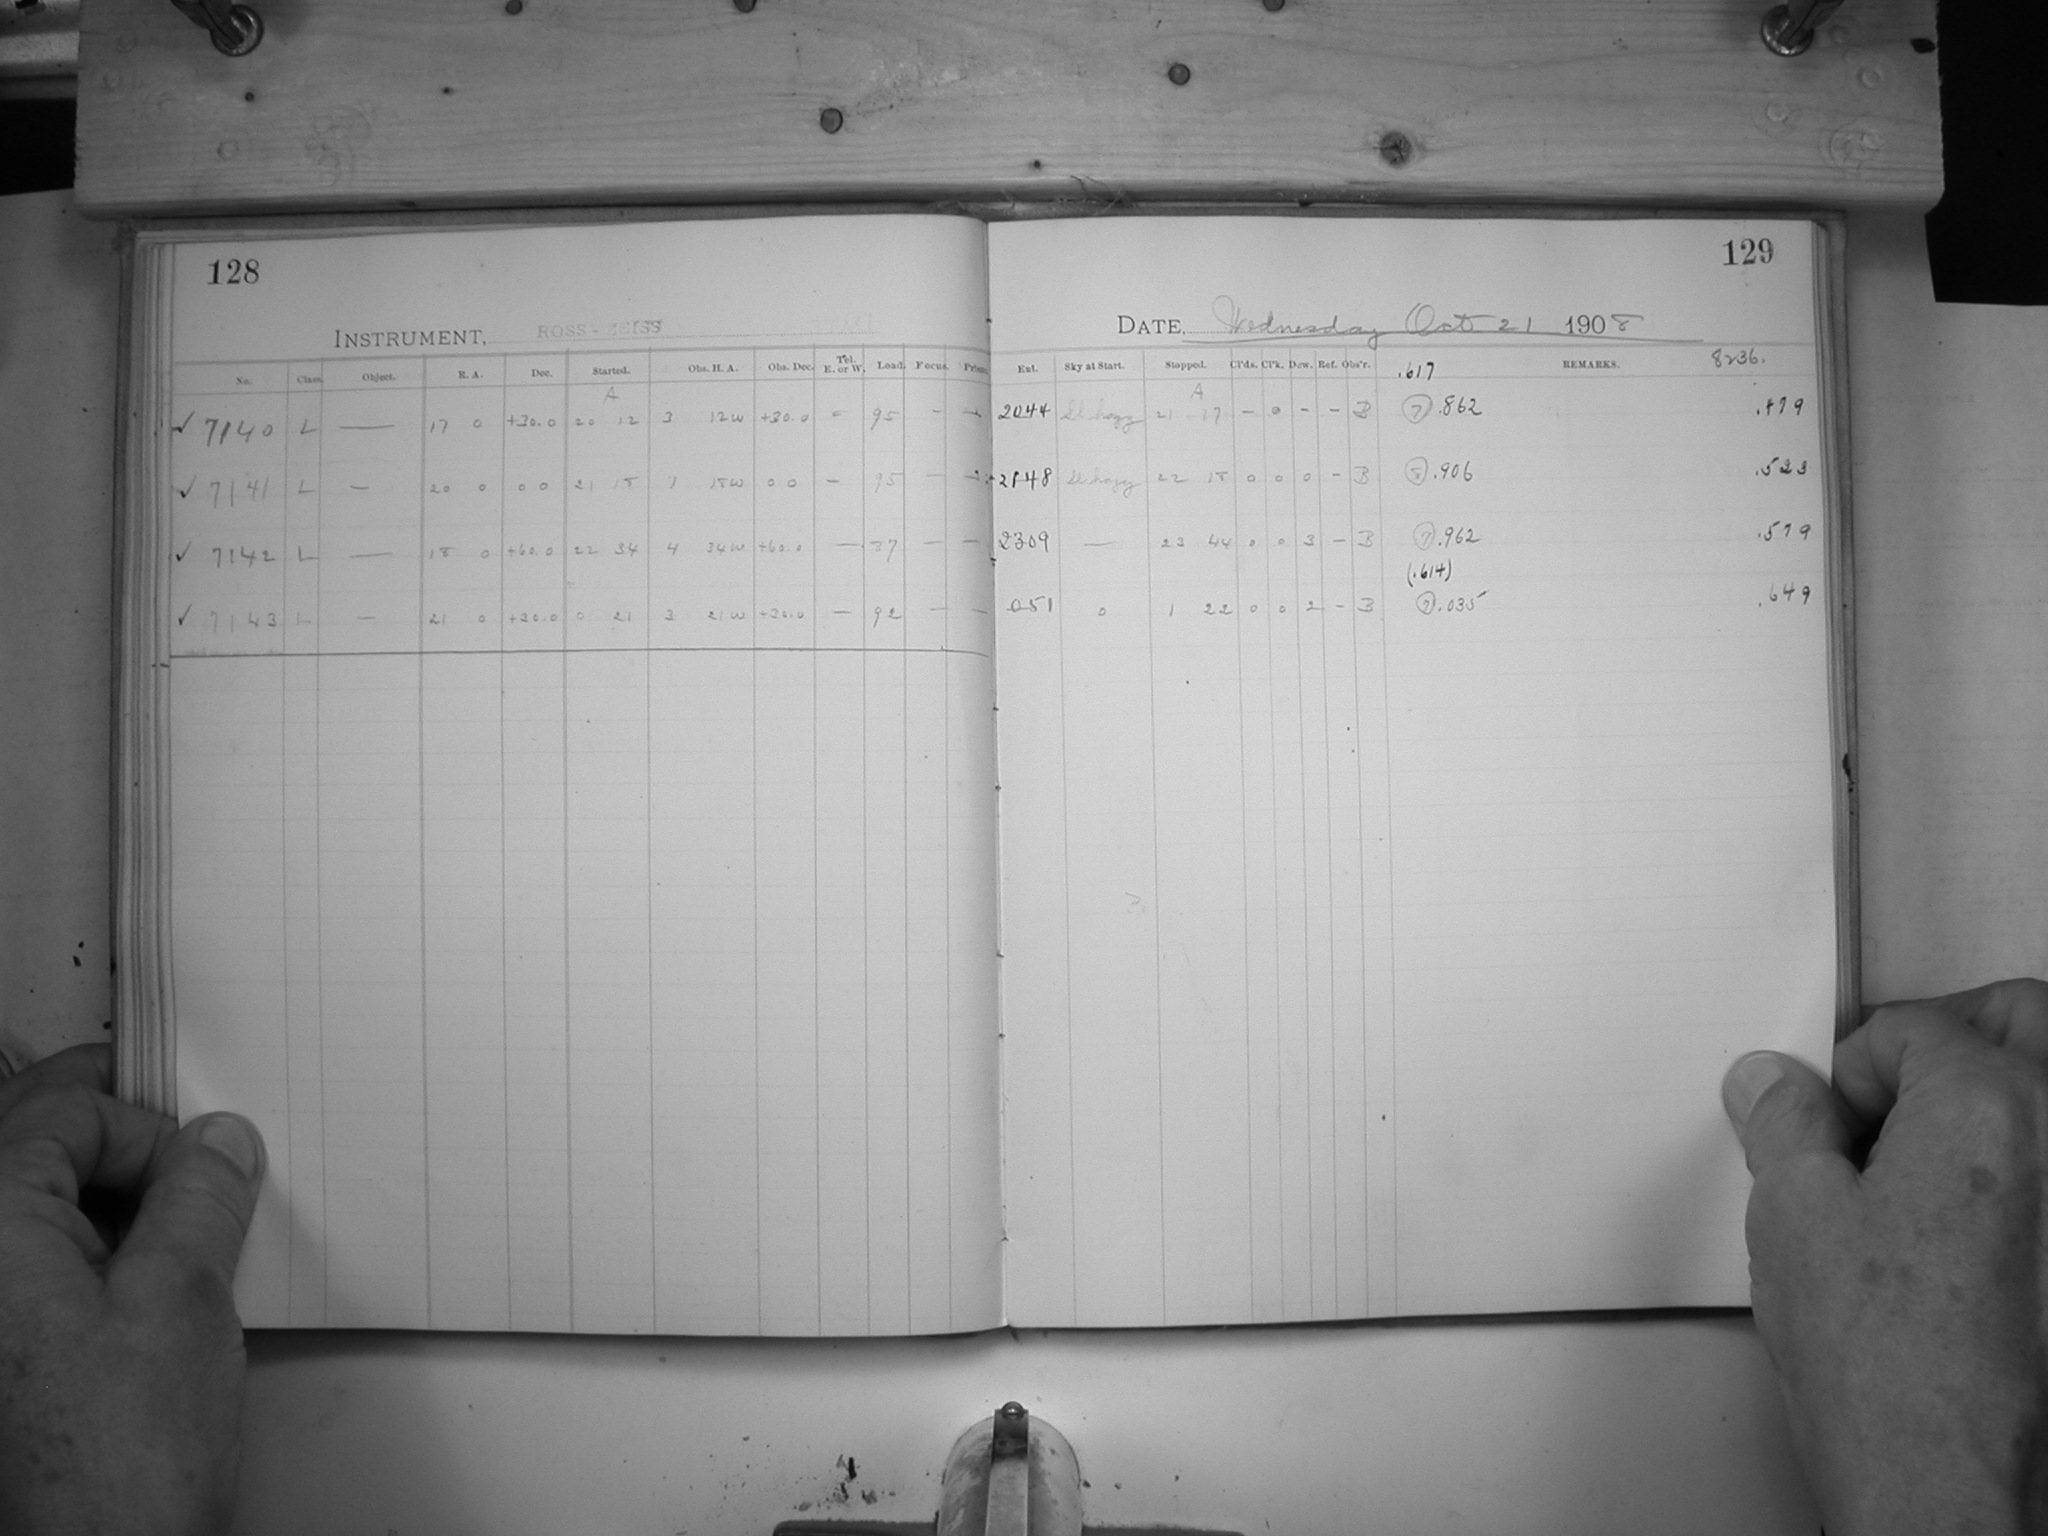 128
129
INSTRUMENT, ROSS-ZEISS
DATE, Wednesday Oct 21 1908
No. Class. Object. R. A. Dec. Started. Obs. H. A. Obs. Dec. Tel. E. or W. Load. Focus. Prism. Ext. Sky at Start. Stopped. Cl'ds. Cl'k. Dew. Ref. Obs'r. .617 REMARKS. 8236.
A A
✓ 7140 L — 17 0 +30.0 20 12 3 12W +30.0 - 95 - - 2044 Sl hazy 21 17 - 0 - - B (7) .862 .479
✓ 7141 L — 20 0 0 0 21 18 1 18W 0 0 - 95 - - 2148 Sl hazy 22 18 0 0 0 - B .906 .523
✓ 7142 L — 18 0 +60.0 22 34 4 34W +60.0 — 37 - - 2309 — 23 44 0 0 3 - B (7) .962 .579
(.614)
✓ 7143 L — 21 0 +30.0 0 21 3 21W +30.0 — 92 - - 051 0 1 22 0 0 2 - B (7) .035 .649